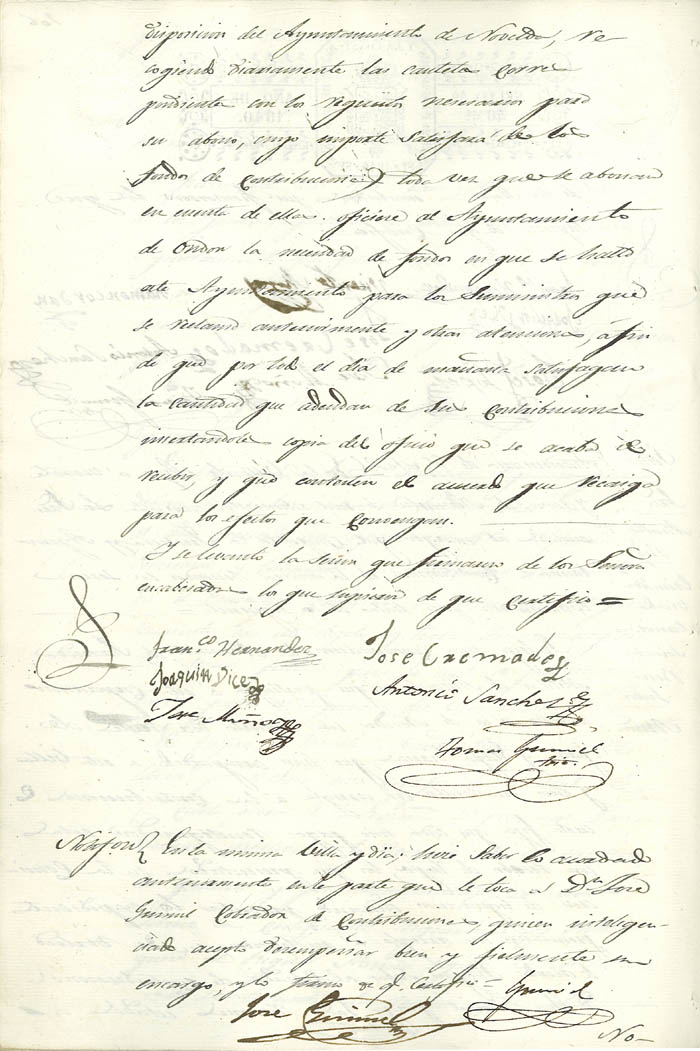 disposicion del Ayuntamiento de Novelda, re
cogiendo diariamente las cautelas corres
pondientes con los requisitos necesarios para
su abono, cuyo importe satisfará de los
fondos de contribuciones toda vez que se abonan
en cuenta de ellas. oficiese al Ayuntamiento
de Ondon la necesidad de fondos en que se halla
este Ayuntamiento para los Suministros que
se reclama anteriormente y otras atenciones, á fin
de que por todo el dia de mañana satisfagan
la cantidad que adeudan de sus contribuciones
insertandole copia del oficio que se acaba de
recibir, y que contesten el acuerdo que recaiga
para los efectos que convengan.
Y se levantó la sesion que firmaron de los Señores
encabezados los que supieron de que certifico =
Fran.co Hernandez
Jose Cremades
Joaquin Dicez
Antonio Sanchez
Jose Muñoz
Tomas Gumiel
Srio.
En la misma Villa y dia; hice saber lo acordado
anteriormente en la parte que le toca a Dn. José
Gumiel Cobrador de Contribuciones, quien inteligen-
ciado aceptó desempeñar bien y fielmente su
encargo, y lo firmo de q. certifico = Gumiel
Jose Gumiel
No-